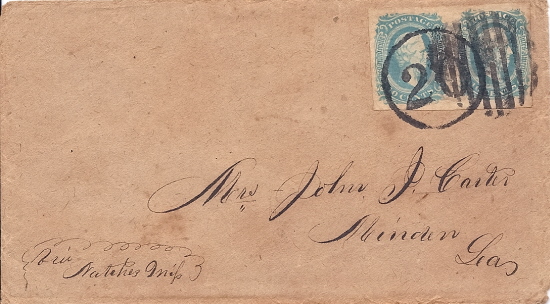 POSTAGE
20
Mrs John J. Carter
Minden
La,
Via
Natchez Miss